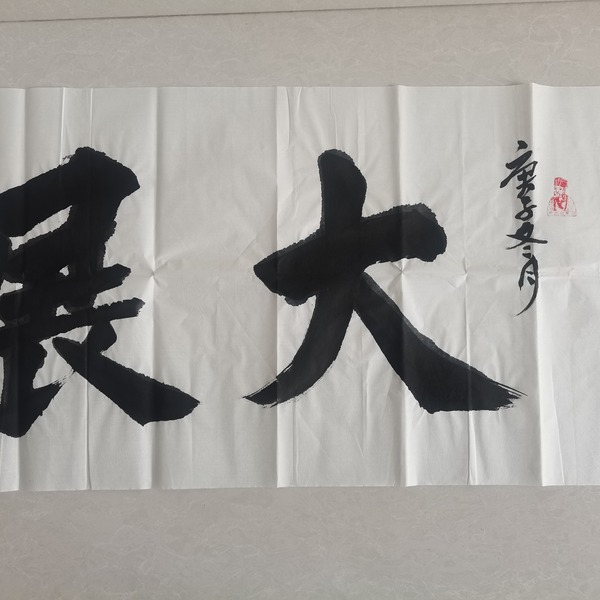 庚子冬月
大展